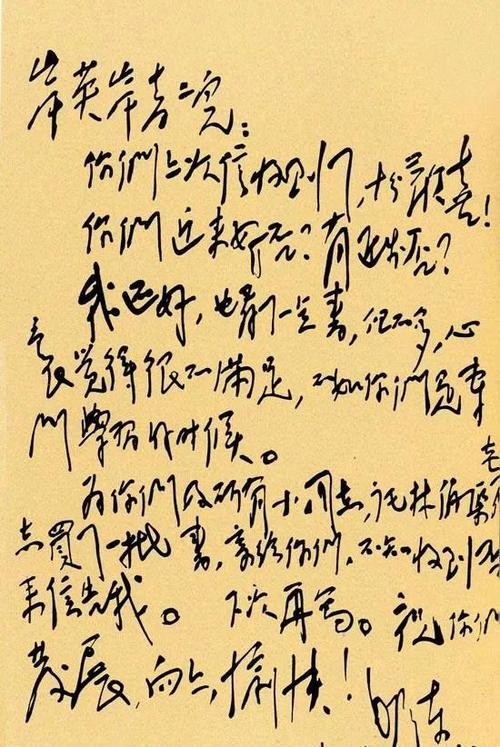 岸英岸青二兒：
你們上次信收到了，十分歡喜！
你們近来好否？有进步否？
我还好，也看了一点書，但不多，心
里覺得很不满足，不如你們是專
門學習的时候。
为你們及所有小同志，托林伯渠老同
志買了一批書，寄给你們，不知收到否
来信告我。下次再写。祝你們
發展，向上，愉快！ 泽东